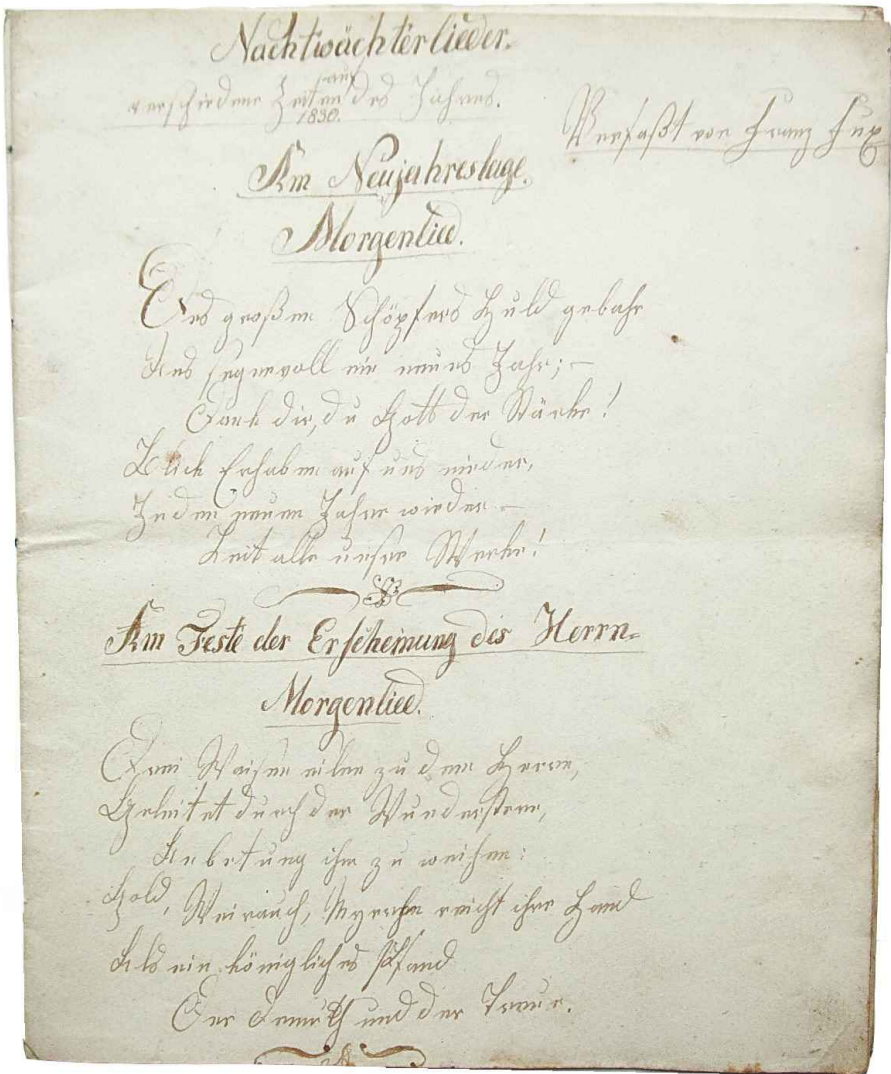 Nachtwächterlieder.
auf
verschiedene Zeiten des Jahres.
1830.
Verfaßt von Franz Fux
Am Neujahrstage.
Morgenlied.
Des großen Schöpfers Huld gebahr
Uns segnevoll ein neues Jahr; –
Dank dir, du Gott der Stärke!
Blick Erhaben auf uns nieder,
In dem neuen Jahre wieder –
Leit alle unsere Werke!
Am Feste der Erscheinung des Herrn.
Morgenlied.
Drei Waisen eilen zu dem Herrn,
Geleitet durch der Wunderstern,
Anbetung ihm zu weihen:
Gold, Weirauch, Myrrhe reicht ihre Hand
Als ein königliches Pfand
Der Demuth und der Treue.